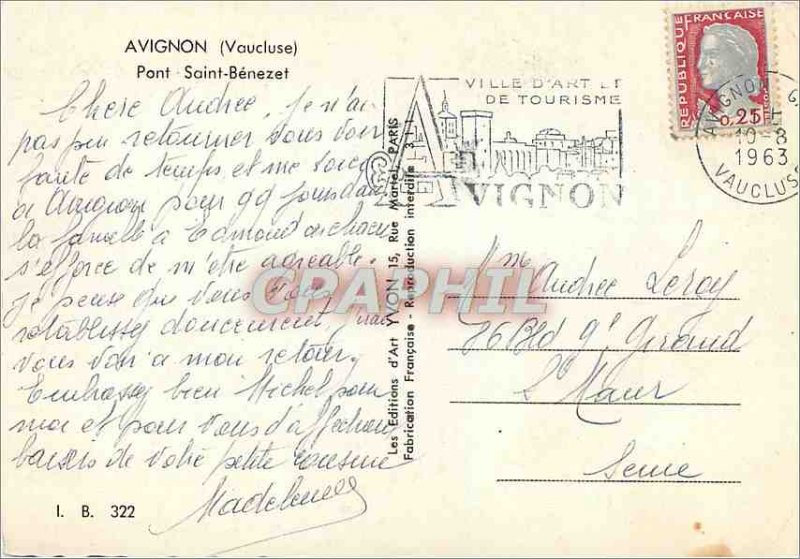 AVIGNON (Vaucluse)
Pont Saint-Bénezet
Chère Andrée, je n'ai
pas pu retourner vous voir
faute de temps et me voici
à Avignon pour qq jours dans
la famille à Edmond où chacun
s'efforce de m'être agréable.
Je pense que vous vous
rétablissez doucement, j'irai
vous voir à mon retour.
Embrassez bien Michel pour
moi et pour vous d'affectueux
baisers de votre petite cousine
Madeleine
I. B. 322
Les Editions d'Art YVON 15, Rue Martel, PARIS
Fabrication Française - Reproduction interdite 3-1-1
VILLE D'ART ET
DE TOURISME
AVIGNON
REPUBLIQUE FRANÇAISE
0,25
AVIGNON G.
10 - 8
1963
VAUCLUSE
CPAPHIL
Mme Andrée Leroy
76 Bld Gl Giraud
St Maur
Seine